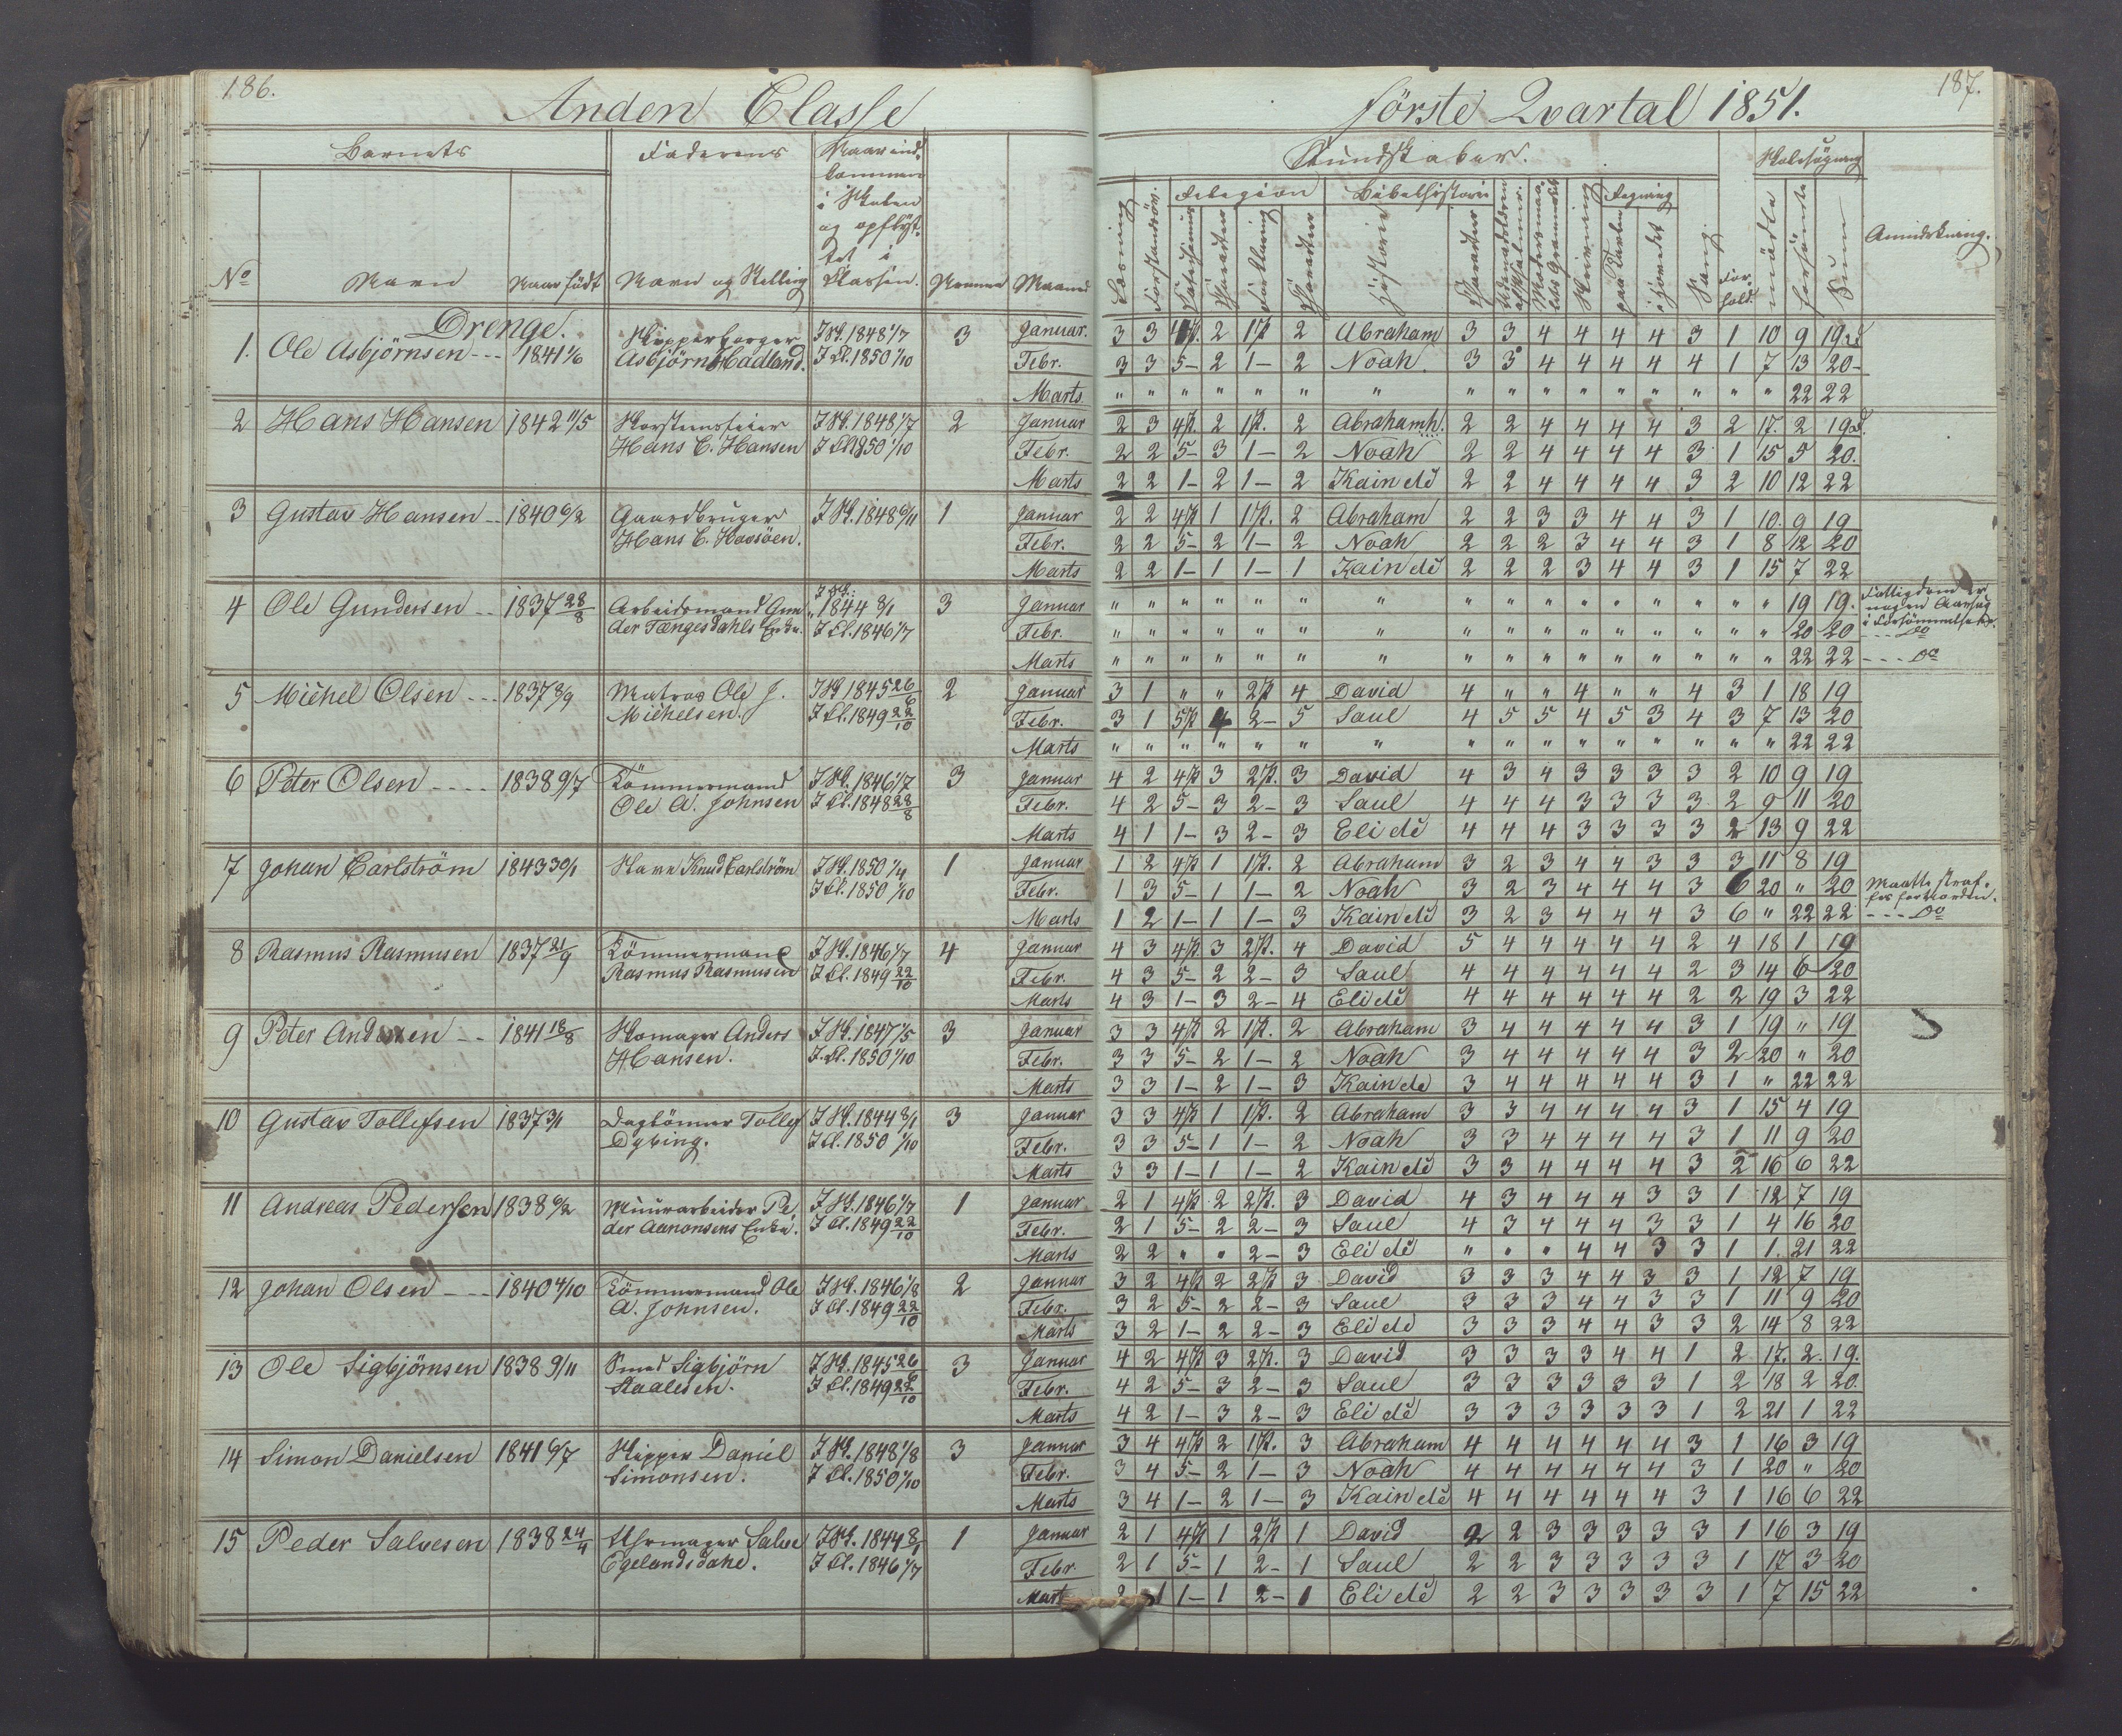 186.
Anden Classe
Barnets
Faderens
Naar ind-
kommen
i Skolen
og opflyt-
tet i
Klassen.
No
Navn
Naar född
Navn og Stilling
Evner
Maaned
Drenge.
1. Ole Asbjörnsen --- 1841 1/6 Asbjörn Hadland. I Sk. 1848 1/7 I Cl. 1850 1/10 3 Januar.
Febr.
Marts
2 Hans Hansen 1842 11/5 Skorstensfeier Hans C. Hansen I Sk. 1848 1/7 I Cl. 1850 1/10 2 Januar
Febr.
Marts
3 Gustav Hansen -- 1840 6/2 Gaardbruger Hans C. Havsöen. I Sk. 1848 6/11 1 Januar
Febr.
Marts
4 Ole Gundersen -- 1837 28/8 Arbeidsmand Gun-
der Tængesdahls Enke. I Sk. 1844 8/1 I Cl. 1846 1/7 3 Januar
Febr.
Marts
5 Michel Olsen --- 1837 8/9 Matros Ole J.
Michelsen. I Sk 1845 26/6 I Cl. 1849 22/10 2 Januar
Febr.
Marts
6 Peter Olsen ---- 1838 9/7 Tömmermand
Ole A. Johnsen I Sk. 1846 1/7 I Cl. 1848 28/8 3 Januar
Febr.
Marts
7 Johan Carlström 1843 30/1 Knud Carlström I Sk. 1850 1/4 I Cl. 1850 1/10 1 Januar
Febr.
Marts
8 Rasmus Rasmusen 1837 21/9 Tömmermand
Rasmus Rasmusen I Sk. 1846 1/7 I Cl. 1849 22/10 4 Januar
Febr.
Marts
9 Peter Andersen -- 1841 18/8 Skomager Anders
Hansen. I Sk. 1847 1/5 I Cl. 1850 1/10 3 Januar
Febr.
Marts
10 Gustav Tollefsen 1837 3/1 Daglönner Tollef
Dybing. I Sk. 1844 8/1 I Cl. 1850 1/10 3 Januar
Febr.
Marts
11 Andreas Pedersen 1838 6/2 Muurarbeider Pe-
der Aanonsens Enke. I Sk. 1846 1/7 I Cl. 1849 22/10 1 Januar
Febr.
Marts
12 Johan Olsen --- 1840 4/10 Tömmermand Ole
A. Johnsen. I Sk. 1846 1/8 I Cl. 1849 22/10 2 Januar
Febr.
Marts
13 Ole Sigbjörnsen 1838 9/11 Smed Sigbjörn
Staalesen. I Sk. 1845 26/6 I Cl. 1849 22/10 3 Januar
Febr.
Marts
14 Simon Danielsen 1841 6/7 Skipper Daniel
Simonsen. I Sk. 1848 1/8 I Cl. 1850 1/10 3 Januar
Febr.
Marts
15 Peder Salvesen 1838 24/4 Uhrmager Salve
Egelandsdahl. I Sk. 1844 8/1 I Cl. 1846 1/7 1 Januar
Febr.
Mart
187.
förste Qvartal 1851.
Kundskaber.
Skolesögning
Religion
Bibelhistorie
Regning
Læsning
Forklaring
Historie
Skrivning
paa Tavlen
i Hovedet
Sang.
For-
hold.
mödte
forsömte
Sum
Anmærkning.
3 3 4 p. 2 1 p. 2 Abraham 3 3 4 4 4 4 3 1 10 9 19 d
3 3 5 - 2 1 - 2 Noah. 3 3 4 4 4 4 4 1 7 13 20 -
" " " " " " " " " " " " " " " " 22 22
2 3 4 p. 2 1 p. 2 Abraham h. 2 2 4 4 4 4 3 2 17. 2 19 d.
2 2 5 - 3 1 - 2 Noah 2 2 4 4 4 4 3 1 15 5 20.
2 2 1 - 2 1 - 2 Kain etc 2 2 4 4 4 4 3 2 10 12 22
2 2 4 p 1 1 p. 2 Abraham 2 2 3 3 4 4 3 1 10. 9 19
2 2 5 - 2 1 - 2 Noah 2 2 2 3 4 4 3 1 8 12 20
2 2 1 - 1 1 - 1 Kain etc 2 2 2 3 4 4 3 1 15 7 22
" " " " " " " " " " " " " " " " 19 19. Fattigdom er
nogen Aarsag
i Forsömmelsen.
" " " " " " " " " " " " " " " " 20 20 --- Do
" " " " " " " " " " " " " " " " 22 22 --- Do
3 1 " " 2 p 4 David 4 " " 4 " " 4 3 1 18 19
3 1 5 p 4 2 - 5 Saul 4 5 5 4 5 3 4 3 7 13 20
" " " " " " " " " " " " " " " " 22 22
4 2 4 p 3 2 p. 3 David 4 3 4 3 3 3 3 2 10 9 19
4 2 5 - 3 2 - 3 Saul 4 4 4 3 3 3 3 2 9 11 20
4 1 1 - 3 2 - 3 Eli etc 4 4 4 3 3 3 3 2 13 9 22
1 2 4 p 1 1 p. 2 Abraham 3 2 3 4 4 3 3 3 11 8 19
1 3 5 - 1 1 - 2 Noah 3 2 3 4 4 4 3 6 20 " 20 Maatte straf-
fes
1 2 1 - 1 1 - 3 Kain etc 3 2 3 4 4 4 3 6 " 22 22 --- Do
4 3 4 p. 3 2 p. 4 David 5 4 4 4 4 4 2 4 18 1 19
4 3 5 - 2 2 - 3 Saul 4 4 4 4 4 4 2 3 14 6 20
4 3 1 - 3 2 - 4 Eli etc 4 4 4 4 4 4 2 2 19 3 22
3 3 4 p 2 1 p. 2 Abraham 3 4 4 4 4 4 3 1 19 " 19
3 3 5 - 2 1 - 2 Noah 3 4 4 4 4 4 3 2 20 " 20
3 3 1 - 2 1 - 3 Kain etc 3 4 4 4 4 4 3 1 " 22 22
3 3 4 p 1 1 p. 2 Abraham 3 3 4 4 4 4 3 1 15 4 19
3 3 5 - 1 1 - 2 Noah 3 3 4 4 4 4 3 1 11 9 20
3 3 1 - 1 1 - 2 Kain etc 3 3 4 4 4 4 3 2 16 6 22
2 1 4 p 2 2 p. 3 David 4 3 4 4 4 3 3 1 12 7 19
2 1 5 - 2 2 - 3 Saul 4 3 4 4 4 3 3 1 4 16 20
2 2 " " 2 - 3 Eli etc " " " 4 4 3 3 1 1. 21 22
3 2 4 p 2 2 p 3 David 3 3 3 4 4 3 3 1 12 7 19
3 2 5 - 2 2 - 3 Saul 3 3 3 4 4 3 3 1 11 9 20
3 2 1 - 2 2 - 3 Eli etc 3 3 3 4 4 3 3 2 14 8 22
4 2 4 p 3 2 p. 3 David 3 3 3 3 4 4 1 2 17. 2. 19.
4 2 5 - 3 2 - 3 Saul 3 3 3 3 3 3 1 2 18 2 20.
4 2 1 - 3 2 - 3 Eli etc 3 3 3 3 3 3 1 2 21 1 22
3 4 4 p 2 1 p. 3 Abraham 4 4 4 4 4 4 3 1 16 3 19
3 4 5 - 2 1 - 3 Noah 4 4 4 4 4 4 3 1 20 " 20
3 4 1 - 2 1 - 3 Kain etc 4 4 4 4 4 4 3 1 16 6 22
2 1 4 p 1 2 p 1 David 2 2 3 3 3 3 3 1 16 3 19
2 1 5 - 1 2 - 1 Saul 2 2 3 3 3 3 3 1 17 3 20
2 1 1 - 1 2 - 1 Eli etc 2 2 3 3 3 3 3 1 7 15 22